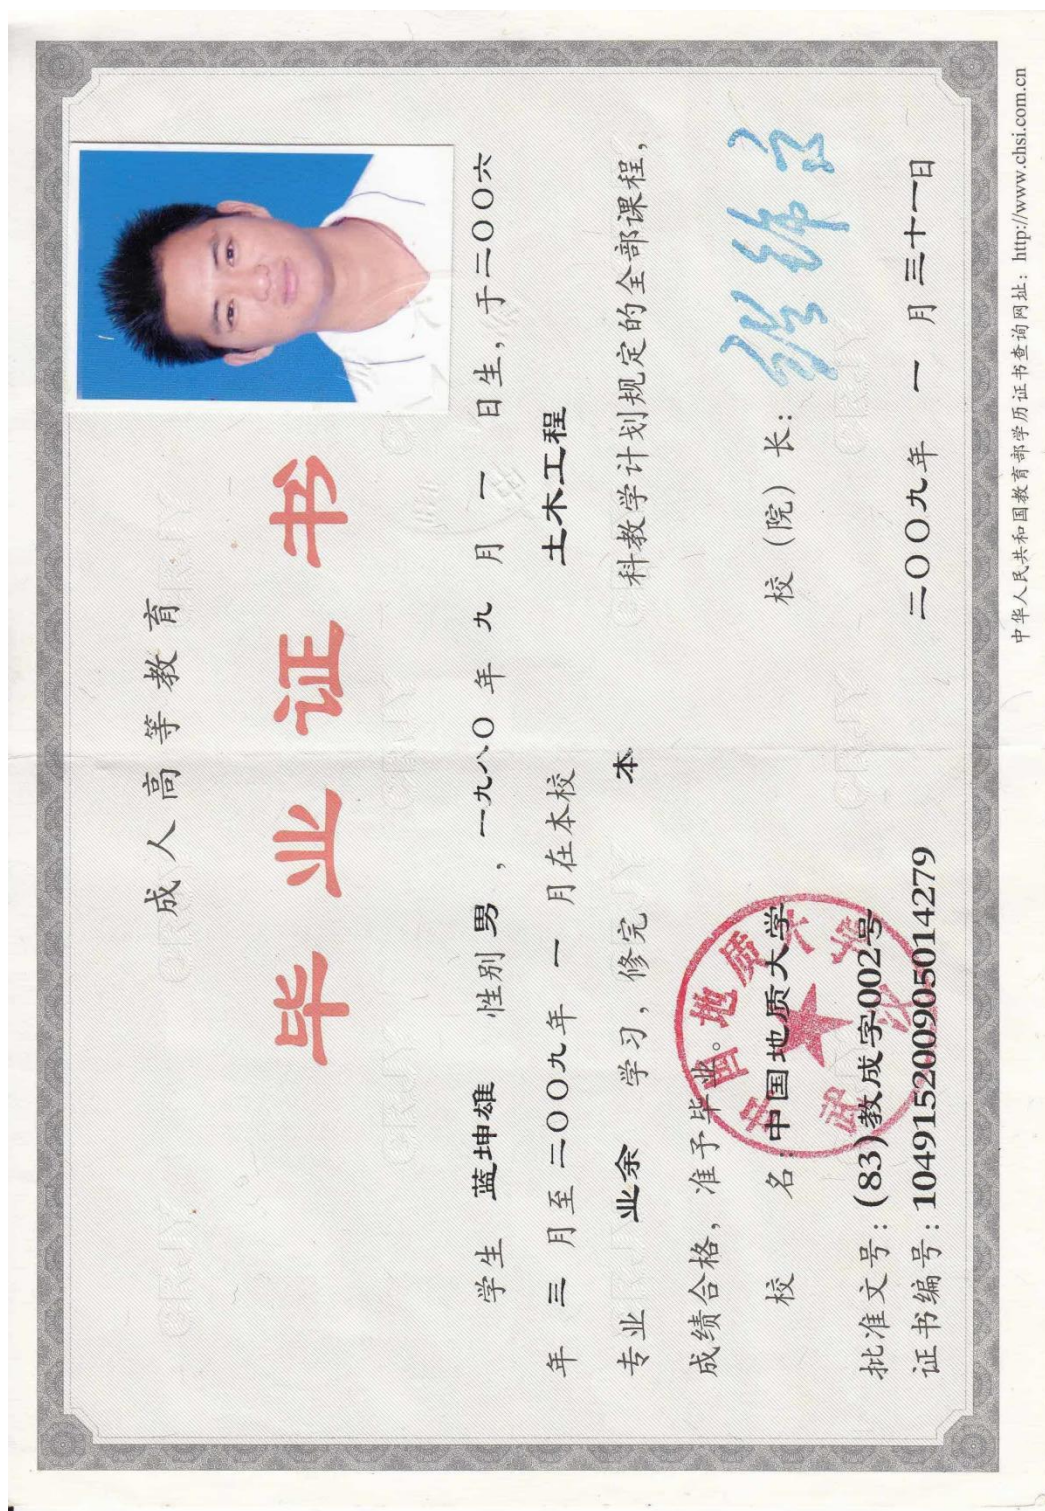 成人高等教育
毕业证书
学生 蓝坤雄 性别 男 ，一九八〇年 九 月 一 日生,于二〇〇六
年 三 月至二〇〇九年 一 月在本校 土木工程
专业 业余 学习，修完 本 科教学计划规定的全部课程，
成绩合格，准予毕业。
校 名：中国地质大学 校（院）长：
批准文号：(83)教成字002号
证书编号：104915200905014279 二〇〇九年 一 月三十一日
中国地质大学
武汉
CRJY
中华人民共和国教育部学历证书查询网址：http://www.chsi.com.cn